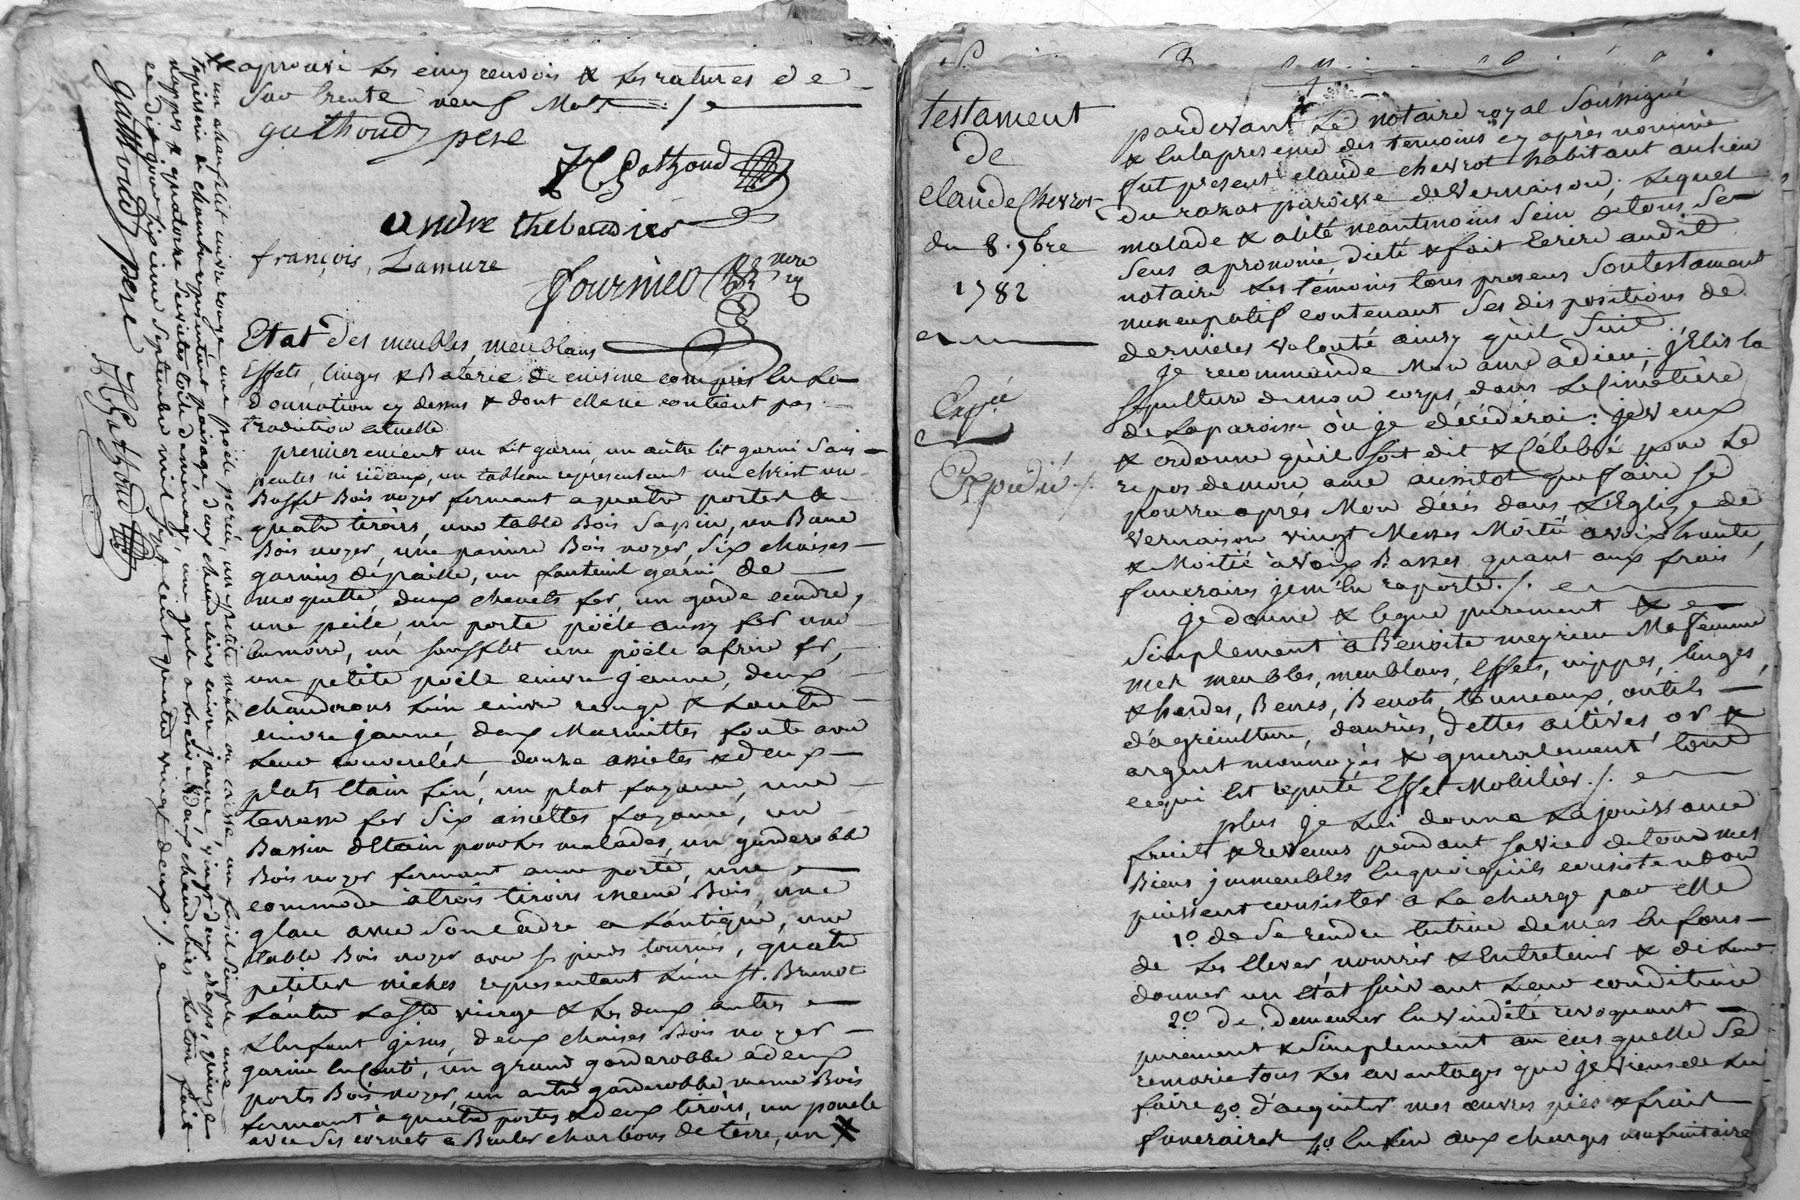 aprouvé les cinq renvois & les ratures de
neuf Mots
guthoud pere
andre thebaudier
françois Lamure
fournier
Etat des meubles, meublans
Effets, linges & Baterie de cuisine compris en la
donnation cy dessus & dont elle ne contient pas
tradition actuelle
premierement un lit garni, un autre lit garni sans
pentes ni rideaux, un tableau representant un christ un
Buffet Bois noyer fermant a quatre portes &
quatre tiroirs, une table Bois sapin, un Banc
Bois noyer, une Bois noyer, six chaises
garnies de paille, un fauteuil garni de
moquette, deux chenets fer, un garde cendre,
une pêle, un porte poêle aussy fer une
un soufflet une pöele a frire fer,
une petite poêle cuivre jeaune, deux
chaudrons l'un cuivre rouge & l'autre
cuivre jaune, deux Marmittes fonte avec
leur couvercles, douze assietes & deux
plats Etain fin, un plat fayance, une
terrasse fer six assiettes fayance, un
Bassin d'Etain pour les malades, un garderobbe
Bois noyer fermant a une porte, une
commode à trois tiroirs meme Bois, une
glace avec son cadre a l'antique, une
table Bois noyer avec ses pieds tournés, quatre
petites niches representant l'une st. Brunot
l'autre la Ste vierge & les deux autres
L'Enfant jesus, deux chaises Bois noyer
garnies un grand garderobbe a deux
portes Bois noyer, un autre garderobbe meme Bois
fermant a quatre portes & deux tiroirs, un pouele
avec ses cornets a Bruler charbons de terre, un
un chauflit cuivre rouge une poële percée, une petite un fusil simple une
tapisserie de chambre representant paisage deux chaudieres cuivre jeaune, vingt deux draps, quinze
nappes & quatorze serviettes toile de menage, & deux chandeliers Laton fait
ce dit jour septembre mil sept cent quatre vingt deux ./.
guthoud pere
testament
de
claude Chevrot
du 8. 7bre
1782
Expié
Expedié ./.
pardevant Le notaire royal soussigné
& En la presence des temoins cy après nommés
fut present claude chevrot habitant au lieu
du razat paroisse de vernaison, Lequel
malade & alité neantmoins sein de tous se
sens a prononcé dicté & fait Ecrire audit
notaire Les témoins tous presens son testament
nuncupatif contenant ses dispositions de
dernieres volonté ainsy qu'il suit.
je recommande Mon ame a dieu; j'Elis la
sepulture de mon corps dans Le Cimetière
de La paroisse où je décéderai: je veux
& ordonne qu'il soit dit & Célébré pour Le
repos de mon ame aussitot que faire se
pourra après Mon décés dans L'Eglize de
vernaison vingt Messes Moitié a voix haute,
& Moitié à voix Basses, quant aux frais
funeraires je m'En raporte ./.
je donne & legue purement &
simplement à Benoite meyrieu Ma femme
mes meubles, meublans, Effets, nippes, linges,
& hardes, Benes, Benots, tonneaux, outils
d'agriculture, danrées, dettes actives, or &
argent monnoyés & generalement tout
ce qui Est reputé Effet Mobilier ./.
plus je Lui donne La jouissance
fruits & revenus pendant sa vie de tous mes
Biens jmmeubles En quoi qu'ils consistent ou
puissent consister a La charge par elle
1º. de se rendre tutrice de mes Enfans
de Les Elever, nourrir & Entretenir & de Leur
donner un Etat suivant Leur condition
2º. de demeurer En viduité revoquant
purement & simplement au cas quelle se
remarie tous Les avantages que je viens de Lui
faire 3º. d'acquiter mes œuvres pies & frais
funeraires 4º. En fin aux charges usufruitaire